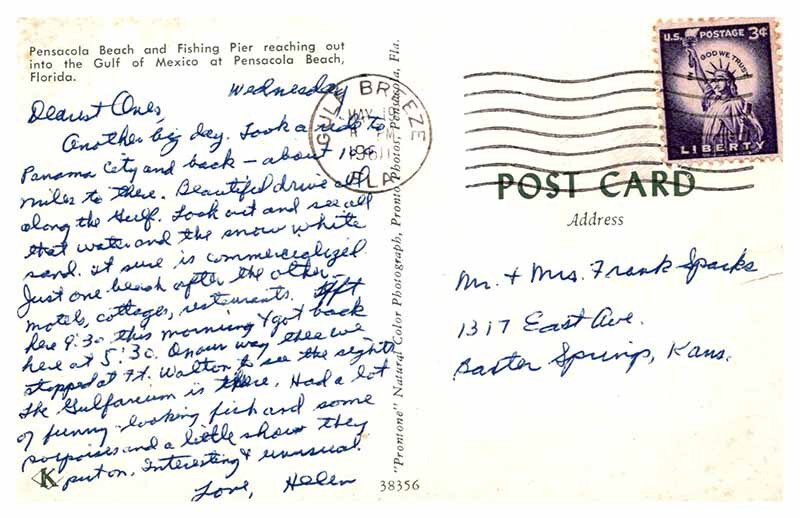 Pensacola Beach and Fishing Pier reaching out
into the Gulf of Mexico at Pensacola Beach,
Florida.
Wednesday
Dearest Ones,
Another big day. Took a ride to
Panama City and back – about
miles to there. Beautiful drive all
along the Gulf. Look out and see all
that water and the snow white
sand. It sure is commercialized.
Just one beach after the other –
motels, cottages, restaurants. Left
here 9:30 this morning & got back
here at 5:30. On our way there we
stopped at Ft. Walton to see the sights
The Gulfarium is there. Had a lot
of funny-looking fish and some
porpoises and a little show they
put on. Interesting & unusual.
Love, Helen
K
GULF BREEZE
MAY
1961
FLA.
"Promtone" Natural Color Photograph, Pronto Photos, Pensacola, Fla.
38356
U.S. POSTAGE 3¢
IN GOD WE TRUST
LIBERTY
POST CARD
Address
Mr. + Mrs. Frank Sparks
1317 East Ave.
Baxter Springs, Kans.